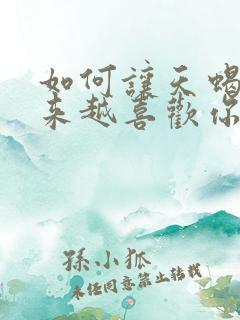 如何讓天蝎
來越喜歡你
孫小狐
未经同意禁止转载